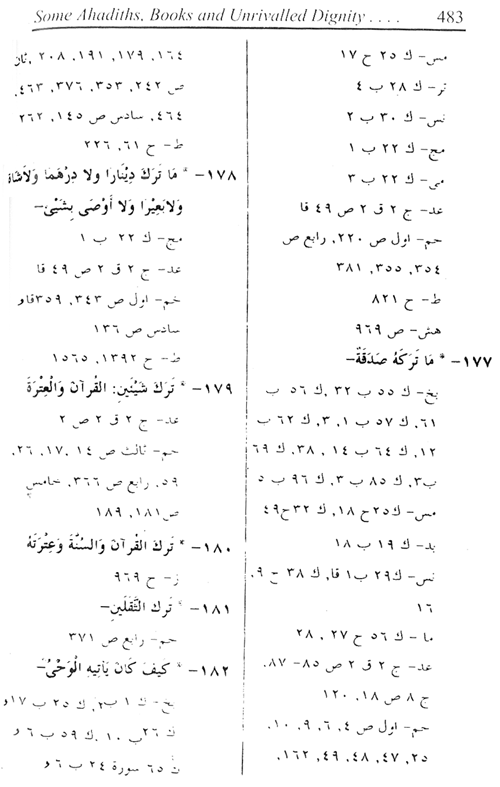 Some Ahadiths, Books and Unrivalled Dignity . . . . 483
مس- ك ٢٥ ح ١٧
تر- ك ٢٨ ب ٤
نس- ك ٣٠ ب ٢
مج- ك ٢٢ ب ١
مى- ك ٢٢ ب ٣
عد- ج ٢ ق ٢ ص ٤٩ قا
حم- اول ص ٢٢٠, رابع ص
٣٥٤, ٣٥٥, ٣٨١
ط- ح ٨٢١
هش- ص ٩٦٩
١٧٧- * مَا تَرَكَهُ صَدَقَةٌ-
بخ- ك ٥٥ ب ٣٢, ك ٥٦ ب
٦١, ك ٥٧ ب ١, ٣, ك ٦٢ ب
١٢, ك ٦٤ ب ١٤, ٣٨, ك ٦٩
ب٣, ك ٨٥ ب ٣, ك ٩٦ ب ٥
مس- ك٢٥ح ١٨, ك ٣٢ح٤٩
بد- ك ١٩ ب ١٨
نس- ك٢٩ ب١ قا, ك ٣٨ ح ٩,
١٦
ما - ك ٥٦ ح ٢٧, ٢٨
عد- ج ٢ ق ٢ ص ٨٥- ٨٧,
ج ٨ ص ١٨, ١٢٠
حم- اول ص ٤, ٦, ٩, ١٠,
٢٥, ٤٧, ٤٨, ٤٩, ١٦٢,
١٦٤, ١٧٩, ١٩١, ٢٠٨,
ص ٢٤٢, ٣٥٣, ٣٧٦, ٤٦٣,
٤٦٤, سادس ص ١٤٥, ٢٦٢
ط- ح ٦١, ٢٢٦
١٧٨- * مَا تَرَكَ دِيْنَارا ولا دِرْهَمَا وَلاَشَاة
وَلاَبَعِيْرا وَلا أَوْصَى بِشَيْئ-
مج- ك ٢٢ ب ١
عد- ج ٢ ق ٢ ص ٤٩ قا
حم- اول ص ٣٤٣, ٣٥٩قاو
سادس ص ١٣٦
ط- ح ١٣٩٢, ١٥٦٥
١٧٩- * تَرَكَ شَيْئَينِ: القُرآنَ وَالْعِتْرَةَ
عد- ج ٢ ق ٢ ص ٢
حم- ثالث ص ١٤, ١٧, ٢٦,
٥٩, رابع ص ٣٦٦, خامس
ص١٨١, ١٨٩
١٨٠- * تَرَكَ القُرآنَ وَالسُنَّةَ وَعِتْرَتَهُ
ز- ح ٩٦٩
١٨١- * تَرك الثَّقَلَينِ-
حم- رابع ص ٣٧١
١٨٢- * كيفَ كَانَ يَاتِيهِ الْوَحْىُ-
بخ- ك ١ ب٢, ك ٢٥ ب ١٧و
ك ٢٦ب ١٠, ك ٥٩ ب ٦ و
ك ٦٥ سورة ٢٤ ب ٦ و